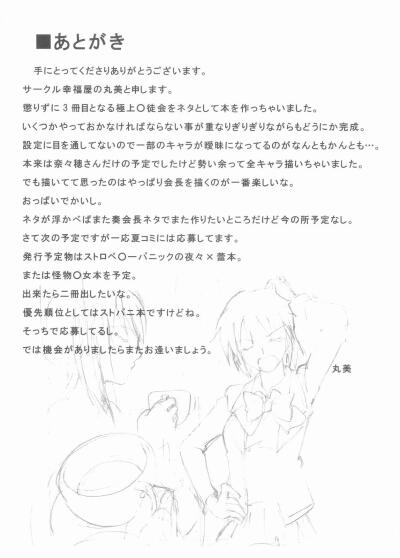 ■あとがき
手にとってくださりありがとうございます。
サークル幸福屋の丸美と申します。
懲りずに3冊目となる極上〇徒会をネタとして本を作っちゃいました。
いくつかやっておかなければならない事が重なりぎりぎりながらもどうにか完成。
設定に目を通してないので一部のキャラが曖昧になってるのがなんともかんとも…。
本来は奈々穂さんだけの予定でしたけど勢い余って全キャラ描いちゃいました。
でも描いてて思ったのはやっぱり会長を描くのが一番楽しいな。
おっぱいでかいし。
ネタが浮かべばまた奏会長ネタでまた作りたいところだけど今の所予定なし。
さて次の予定ですが一応夏コミには応募してます。
発行予定物はストロベ〇ーパニックの夜々×蕾本。
または怪物〇女本を予定。
出来たら二冊出したいな。
優先順位としてはストパニ本ですけどね。
そっちで応募してるし。
では機会がありましたらまたお逢いましょう。
丸美